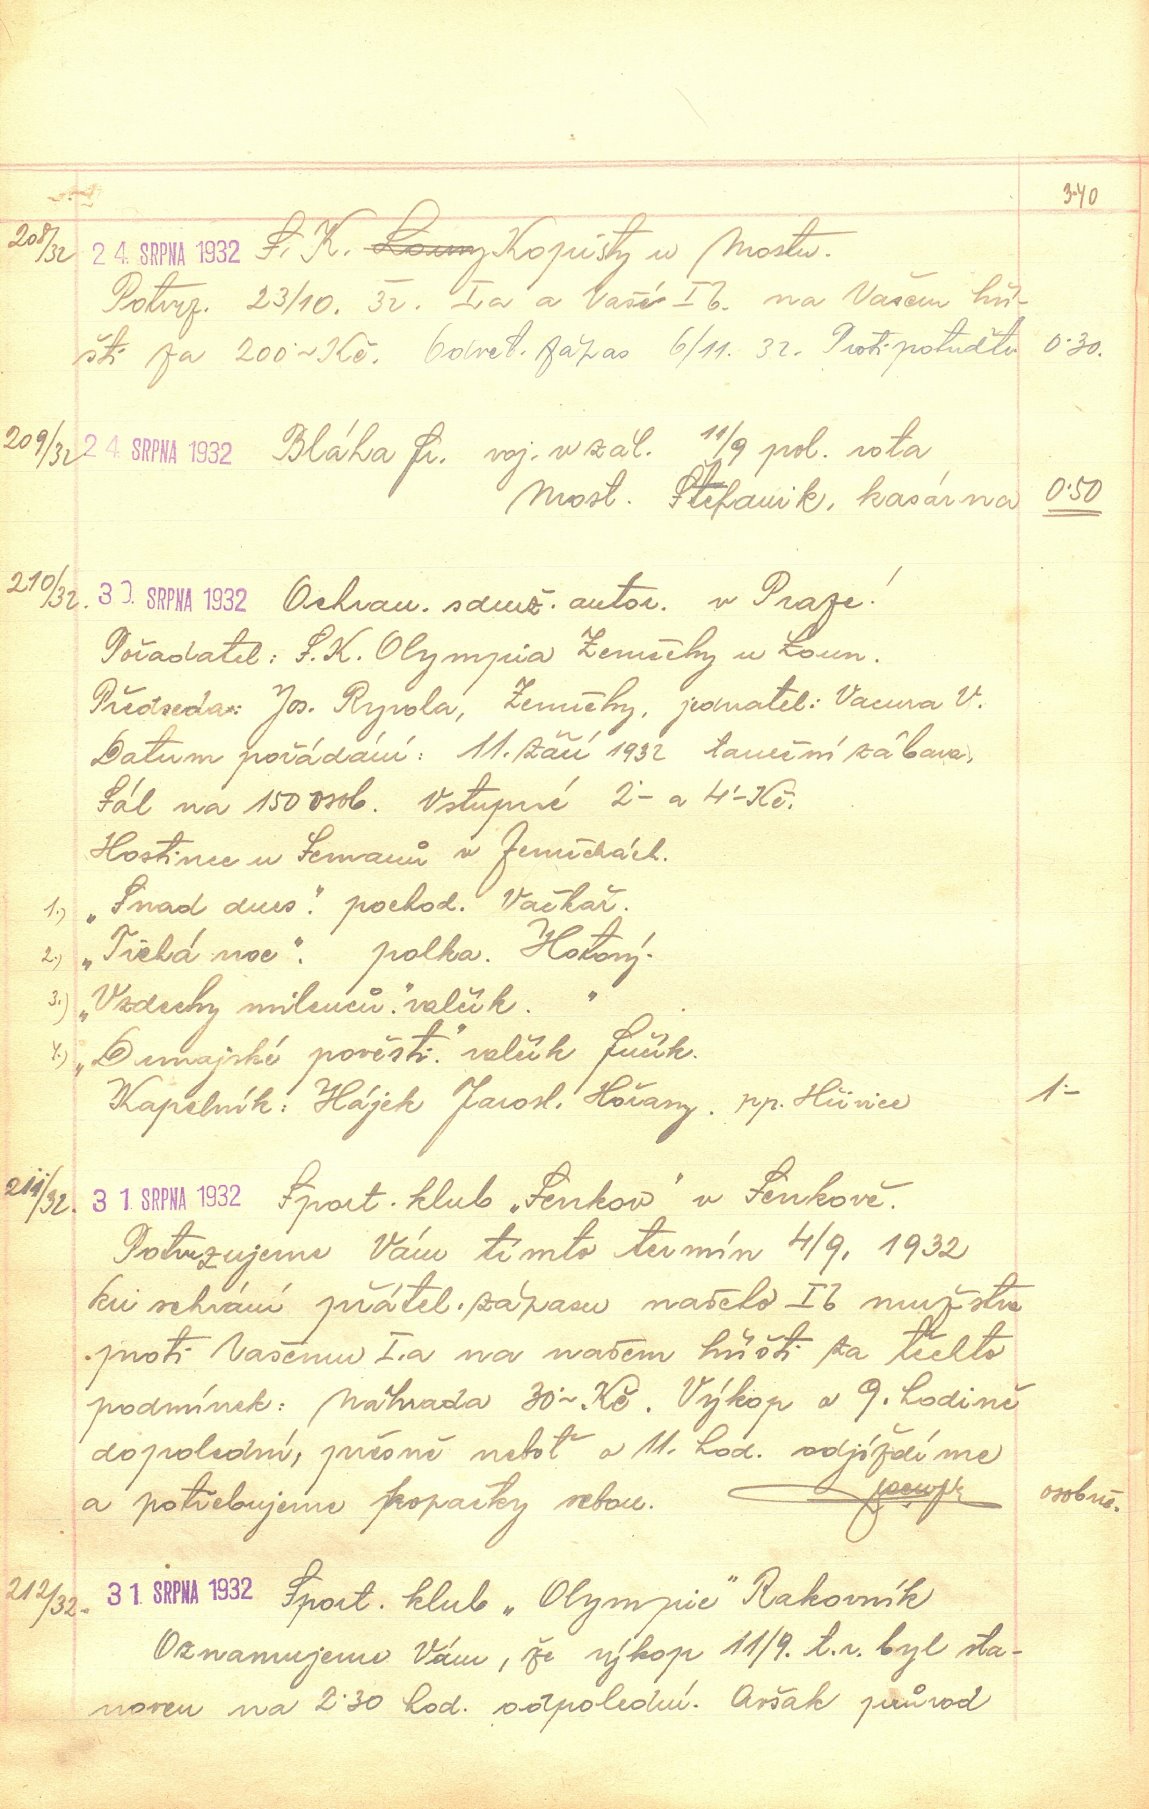 3·40
208/32 24. SRPNA 1932 S. K. Louny Kopisty u Mostu.
Potvrz. 23/10. 32. I.a a Vaše I b. na Vašem hři-
šti za 200·- Kč. Odvet. zápas 6/11. 32. Proti potvrz 0·30.
209/32 24. SRPNA 1932 Bláha Fr. voj. v zál. 11/9 pol. rota
Most. Štefanik. kasárna 0·50
210/32. 30. SRPNA 1932 Ochran. sdruž. autor. v Praze!
Pořadatel: S.K. Olympia Zeměchy u Loun.
Předseda: Jos. Ryvola, Zeměchy, jednatel: Vacura V.
Datum pořádání: 11. září 1932 taneční zábava.
Sál na 150 osob. Vstupné 2·- a 4·- Kč.
Hostinec u Semanů v Zeměchách.
1.) „Snad dnes." pochod. Vačkář.
2.) „Tichá noc". polka. Hotový.
3.) „Vzdechy milenců." valčík. "
4.) „Dunajské pověsti." valčík Fučík.
Kapelník: Hájek Jarosl. Hořany. pp. Hřivice 1·-
211/32. 31. SRPNA 1932 Sport. klub „Senkov" v Senkově.
Potvrzujeme Vám tímto termín 4/9. 1932
ku sehrání přátel. zápasu našeho I b mužstva
proti Vašemu I.a na našem hřišti za těchto
podmínek: Náhrada 30·- Kč. Výkop o 9. hodině
dopolední, přesně neboť o 11. hod. odjíždíme
a potřebujeme kopačky sebou. osobně.
212/32. 31. SRPNA 1932 Sport. klub „Olympie" Rakovník
Oznamujeme Vám, že výkop 11/9. t.r. byl sta-
noven na 2·30 hod. odpolední. Avšak průvod